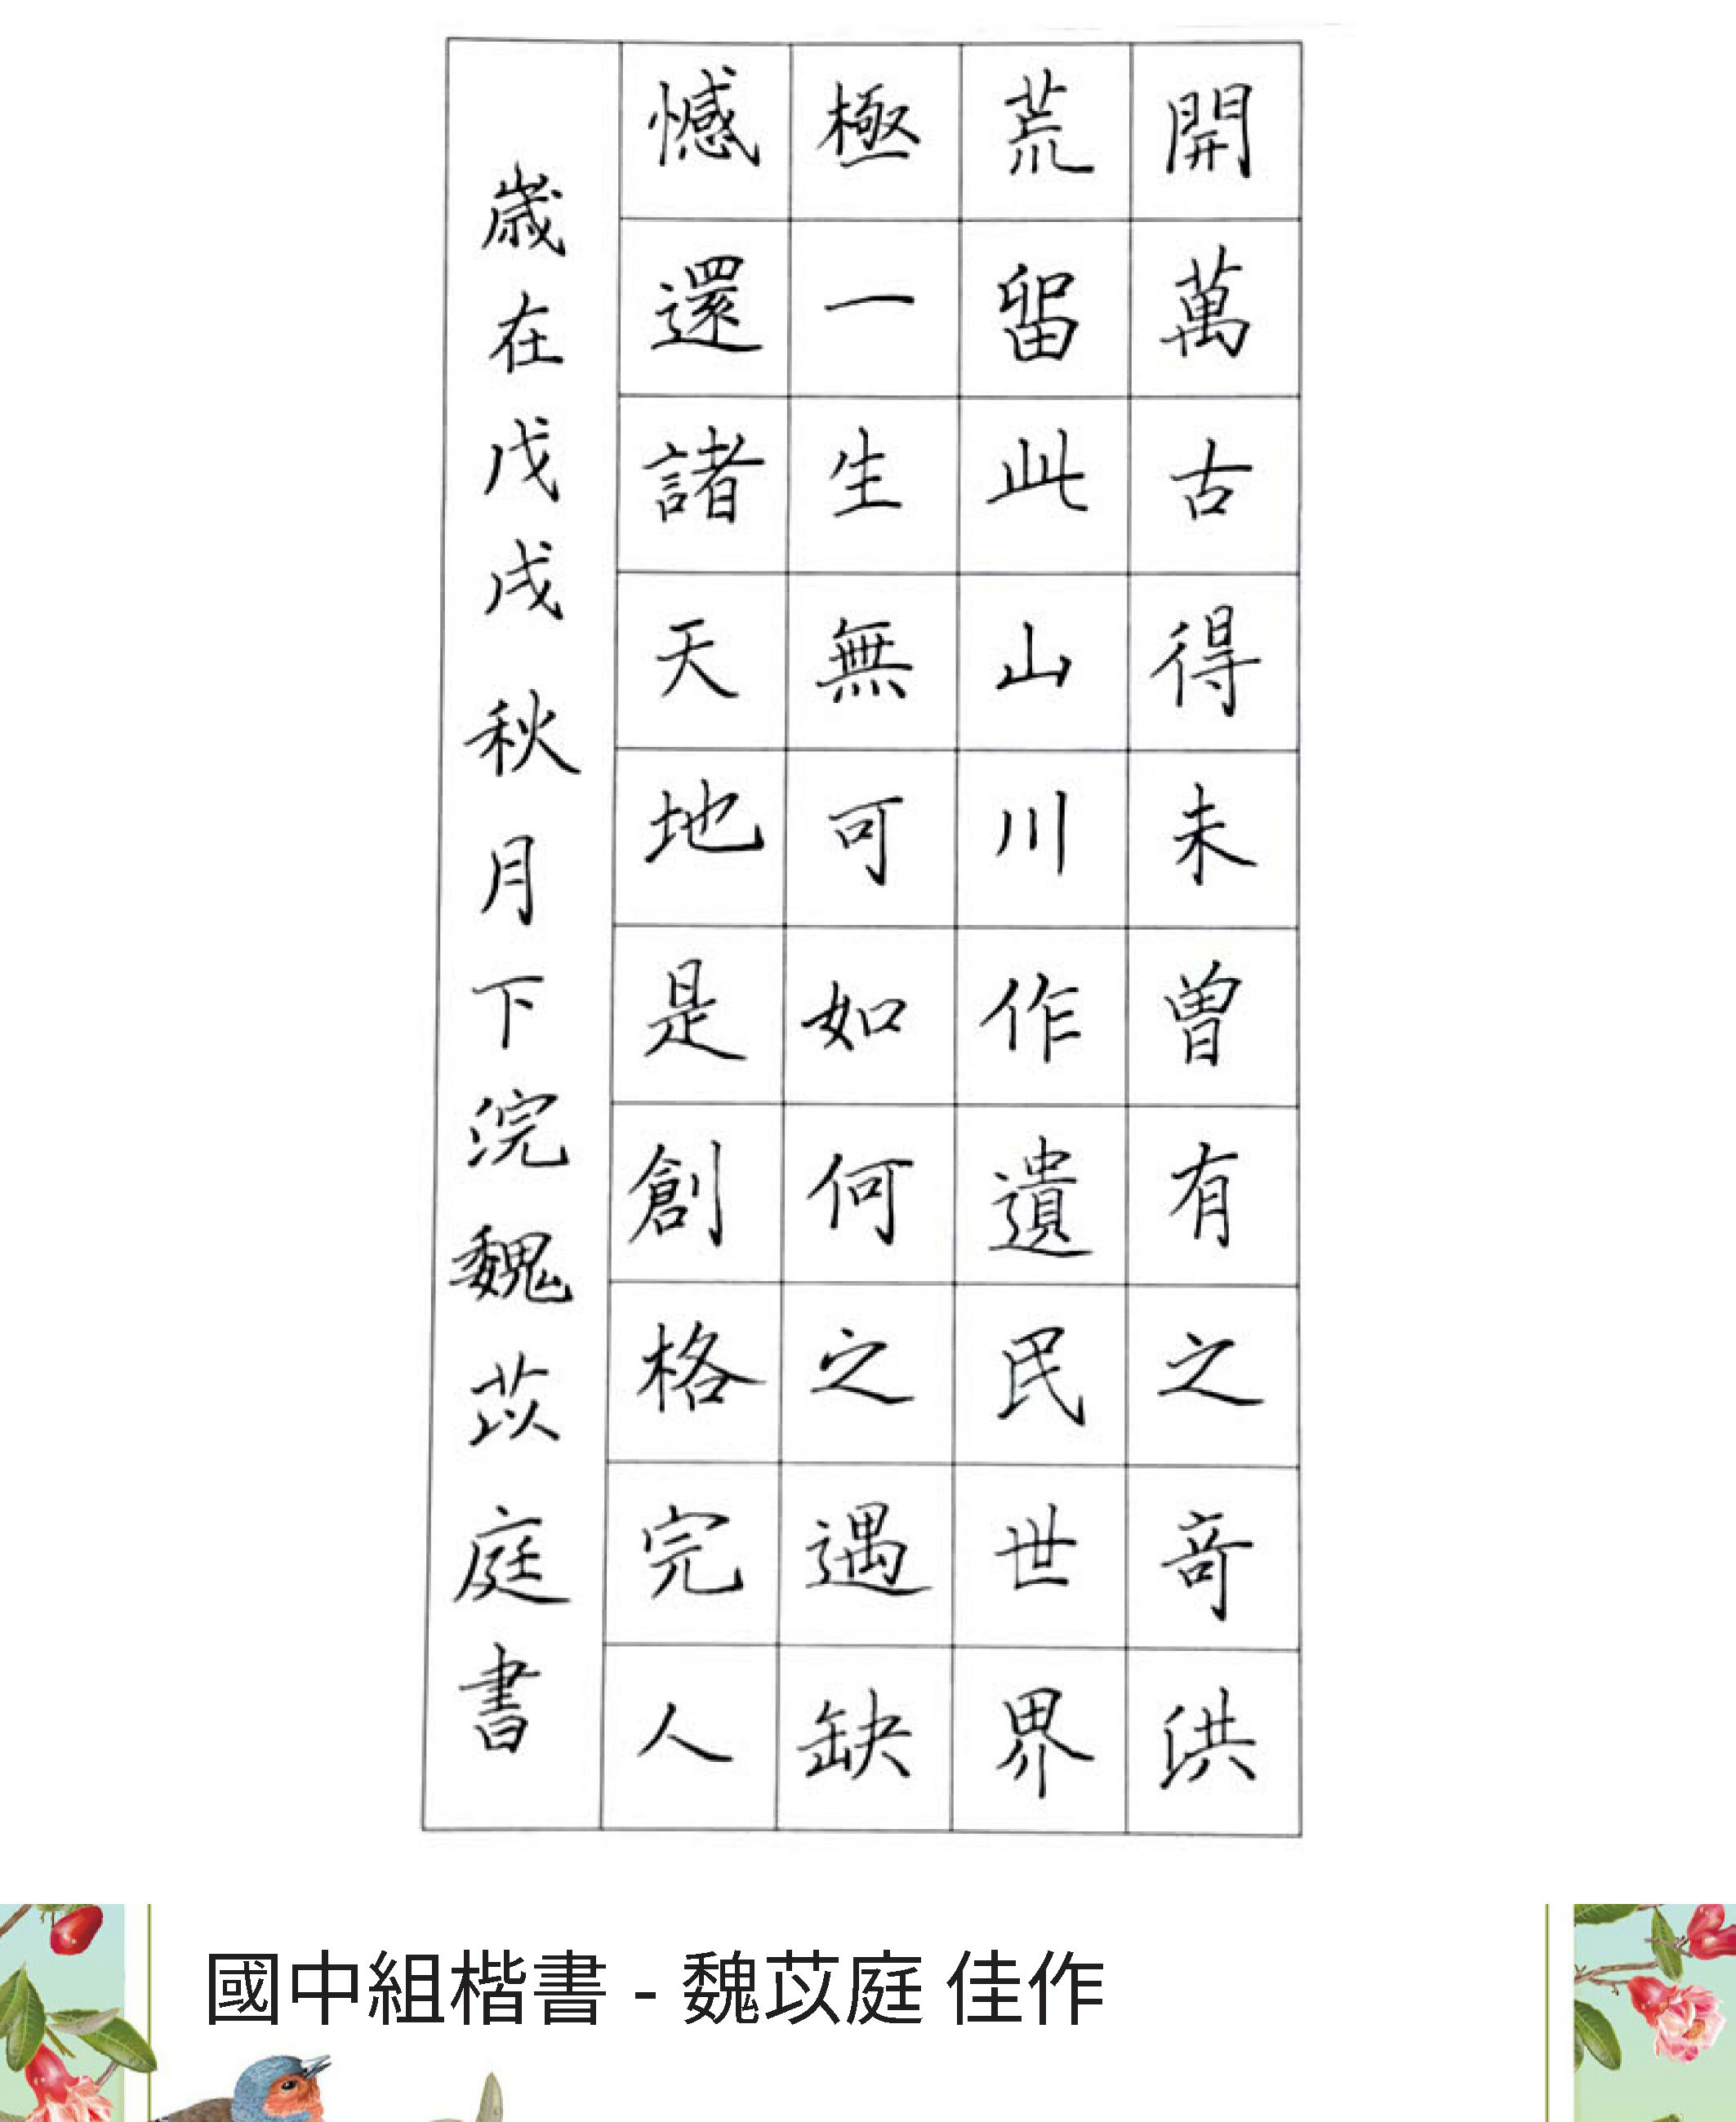 開萬古得未曾有之奇洪
荒留此山川作遺民世界
極一生無可如何之遇缺
憾還諸天地是創格完人
歲在戊戌秋月下浣魏苡庭書
國中組楷書 - 魏苡庭 佳作